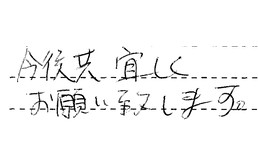 今後共宜しく
お願い致します。